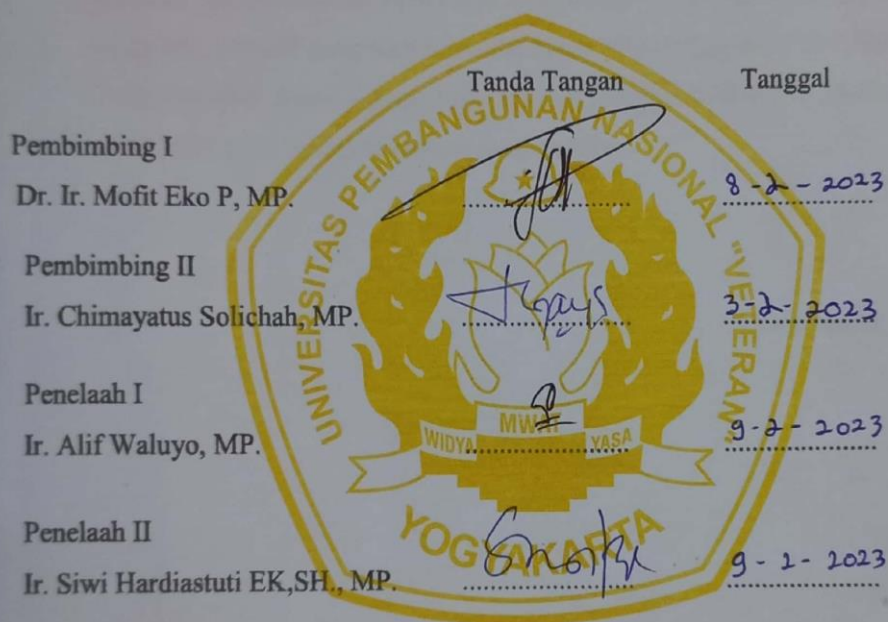 Tanda Tangan Tanggal
Pembimbing I
Dr. Ir. Mofit Eko P, MP. 8-2-2023
Pembimbing II
Ir. Chimayatus Solichah, MP. 3-2-2023
Penelaah I
Ir. Alif Waluyo, MP. 9-2-2023
Penelaah II
Ir. Siwi Hardiastuti EK,SH., MP. 9-2-2023
UNIVERSITAS PEMBANGUNAN NASIONAL "VETERAN"
WIDYA YASA
YOGYAKARTA